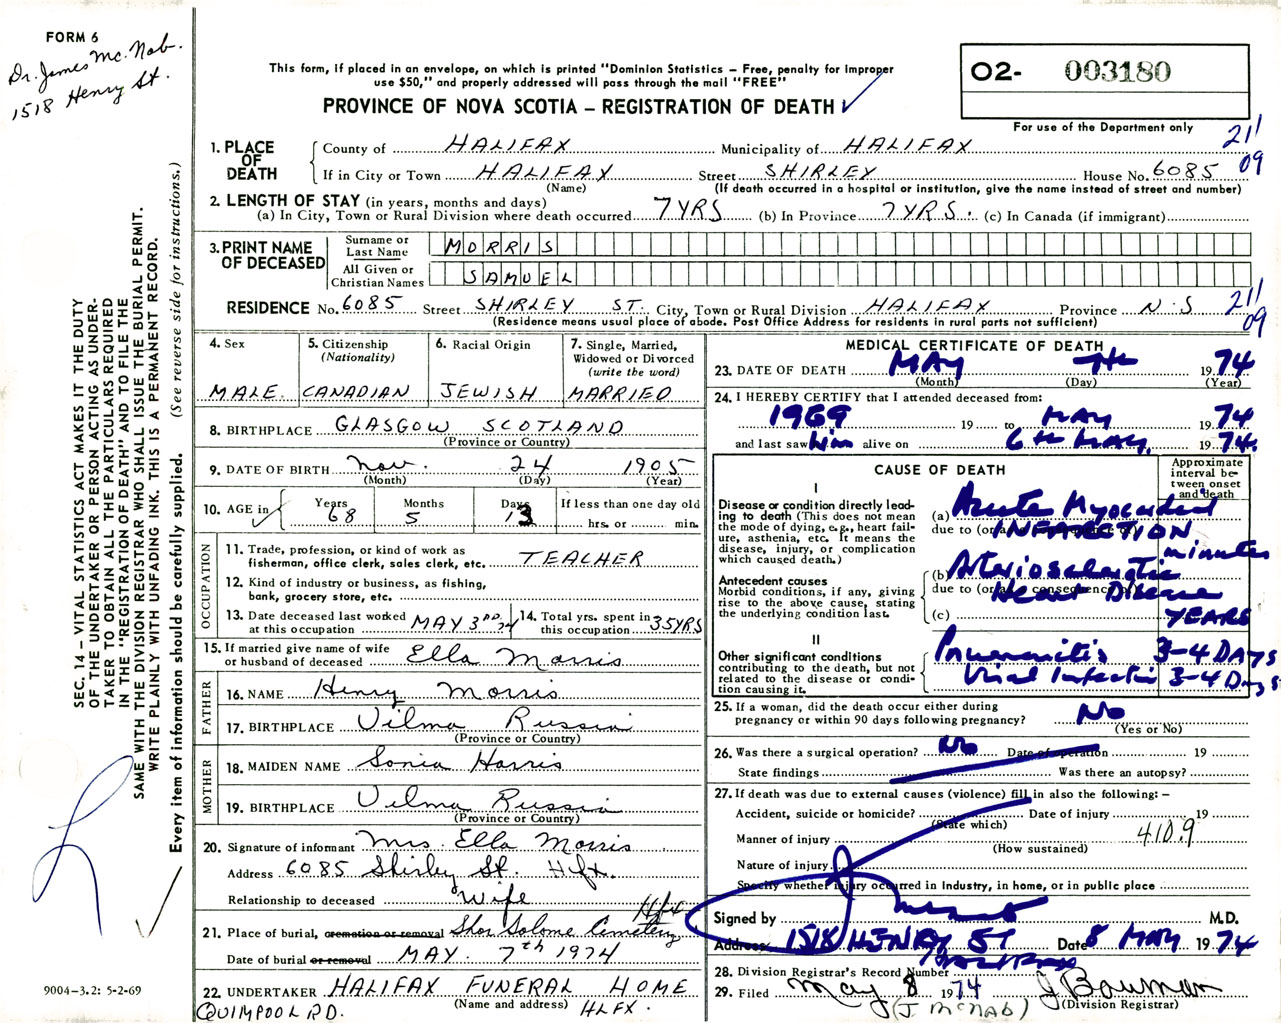 FORM 6
Dr. James Mc. Nab.
1518 Henry St.
This form, if placed in an envelope, on which is printed "Dominion Statistics – Free, penalty for improper
use $50," and properly addressed will pass through the mail "FREE"
PROVINCE OF NOVA SCOTIA – REGISTRATION OF DEATH
02- 003180
For use of the Department only
21
09
1. PLACE OF DEATH
County of HALIFAX Municipality of HALIFAX
If in City or Town HALIFAX Street SHIRLEY House No. 6085
(Name) (If death occurred in a hospital or institution, give the name instead of street and number)
2. LENGTH OF STAY (in years, months and days)
(a) In City, Town or Rural Division where death occurred 7 YRS (b) In Province 7 YRS. (c) In Canada (if immigrant)
3. PRINT NAME OF DECEASED
Surname or Last Name MORRIS
All Given or Christian Names SAMUEL
RESIDENCE No. 6085 Street SHIRLEY ST. City, Town or Rural Division HALIFAX Province N.S
(Residence means usual place of abode. Post Office Address for residents in rural parts not sufficient)
21
09
4. Sex
MALE.
5. Citizenship
(Nationality)
CANADIAN
6. Racial Origin
JEWISH
7. Single, Married,
Widowed or Divorced
(write the word)
MARRIED
8. BIRTHPLACE GLASGOW SCOTLAND
(Province or Country)
9. DATE OF BIRTH Nov. 24 1905
(Month) (Day) (Year)
10. AGE in
Years Months Days If less than one day old
68 5 13 hrs. or min.
OCCUPATION
11. Trade, profession, or kind of work as
fisherman, office clerk, sales clerk, etc. TEACHER
12. Kind of industry or business, as fishing,
bank, grocery store, etc.
13. Date deceased last worked
at this occupation MAY 3RD. 74
14. Total yrs. spent in
this occupation 35 YRS
15. If married give name of wife
or husband of deceased Ella Morris
FATHER
16. NAME Henry Morris
17. BIRTHPLACE Vilma Russia
(Province or Country)
MOTHER
18. MAIDEN NAME Sonia Harris
19. BIRTHPLACE Vilma Russia
(Province or Country)
20. Signature of informant Mrs. Ella Morris
Address 6085 Shirley St. Hfx.
Relationship to deceased Wife
Hfx
21. Place of burial, cremation or removal Shar Solome Cemetery
Date of burial or removal MAY. 7th 1974
22. UNDERTAKER HALIFAX FUNERAL HOME
(Name and address)
QUIMPOOL RD. HLFX.
MEDICAL CERTIFICATE OF DEATH
23. DATE OF DEATH MAY 7th 19 74
(Month) (Day) (Year)
24. I HEREBY CERTIFY that I attended deceased from:
1969 19 to MAY 19 74
and last saw him alive on 6th MAY, 19 74.
CAUSE OF DEATH
Approximate
interval be-
tween onset
and death
I
Disease or condition directly lead-
ing to death (This does not mean
the mode of dying, e.g., heart fail-
ure, asthenia, etc. It means the
disease, injury, or complication
which caused death.)
(a) Acute Myocardial
due to (or as a consequence of) INFARCTION
minutes
Antecedent causes
Morbid conditions, if any, giving
rise to the above cause, stating
the underlying condition last.
(b) Arteriosclerotic
due to (or as a consequence of) Heart Disease
(c) YEARS
II
Other significant conditions
contributing to the death, but not
related to the disease or condi-
tion causing it.
Pneumonitis 3-4 DAYS
Viral Infection 3-4 Days
25. If a woman, did the death occur either during
pregnancy or within 90 days following pregnancy? No
(Yes or No)
26. Was there a surgical operation? No Date of operation 19
State findings Was there an autopsy?
27. If death was due to external causes (violence) fill in also the following: –
Accident, suicide or homicide? Date of injury 19
(State which)
Manner of injury 410.9
(How sustained)
Nature of injury
Specify whether injury occurred in Industry, in home, or in public place
Signed by M.D.
Address 1518 HENRY ST Date 8 MAY 19 74
HALIFAX
28. Division Registrar's Record Number
29. Filed May 8 19 74 J Bowman
(J. McNAB) (Division Registrar)
SEC. 14 – VITAL STATISTICS ACT MAKES IT THE DUTY
OF THE UNDERTAKER OR PERSON ACTING AS UNDER-
TAKER TO OBTAIN ALL THE PARTICULARS REQUIRED
IN THE "REGISTRATION OF DEATH" AND TO FILE THE
SAME WITH THE DIVISION REGISTRAR WHO SHALL ISSUE THE BURIAL PERMIT.
WRITE PLAINLY WITH UNFADING INK. THIS IS A PERMANENT RECORD.
Every item of information should be carefully supplied. (See reverse side for instructions.)
9004-3.2: 5-2-69